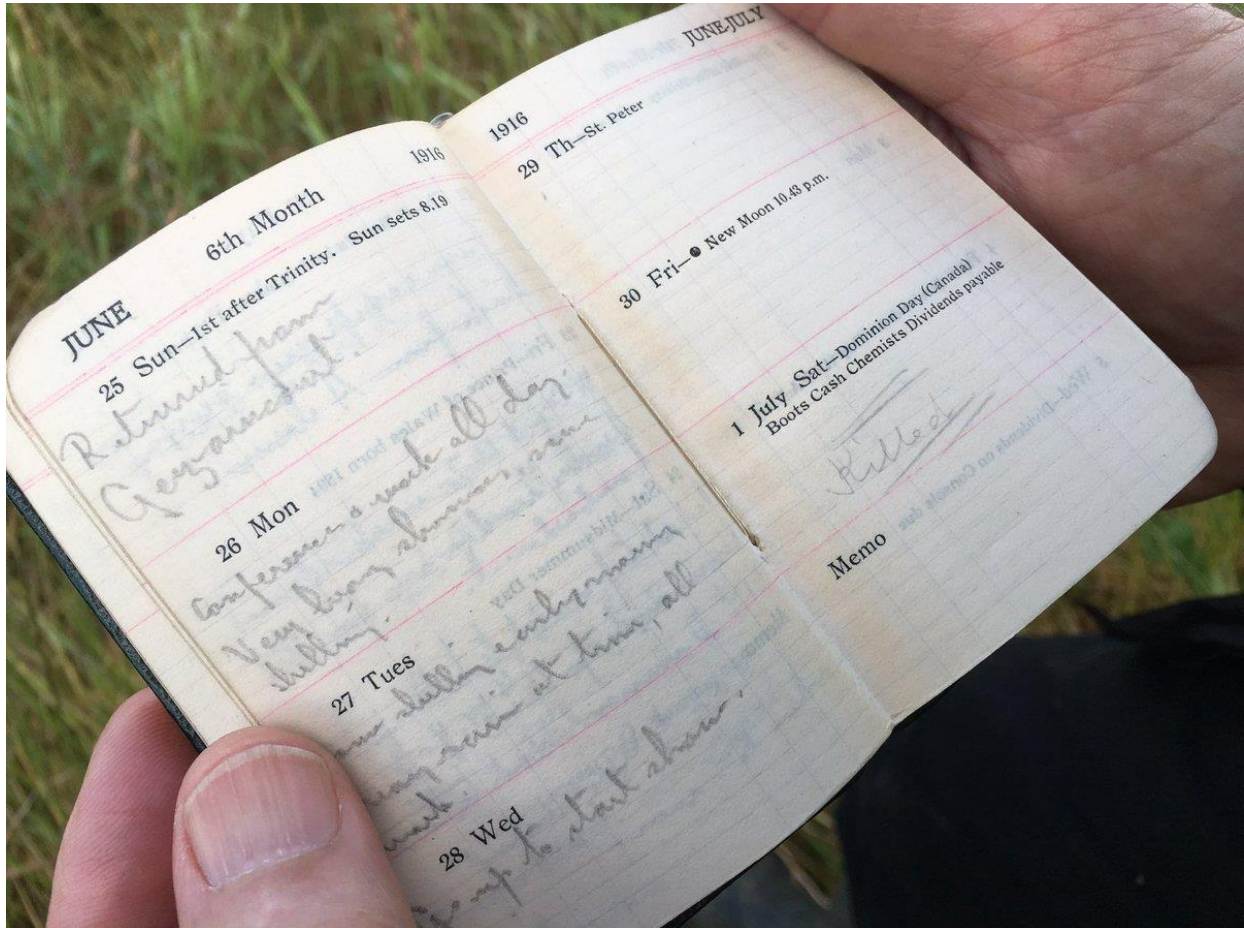 JUNE 6th Month 1916
25 Sun—1st after Trinity. Sun sets 8.19
Returned from
Gezaincourt.
26 Mon
Conferences & work all day.
Very heavy showers, some
shelling.
27 Tues
shelling early morning
rain at times, all
28 Wed
to start show.
1916 JUNE-JULY
29 Th—St. Peter
30 Fri—● New Moon 10.43 p.m.
1 July Sat—Dominion Day (Canada)
Boots Cash Chemists Dividends payable
Killed
Memo